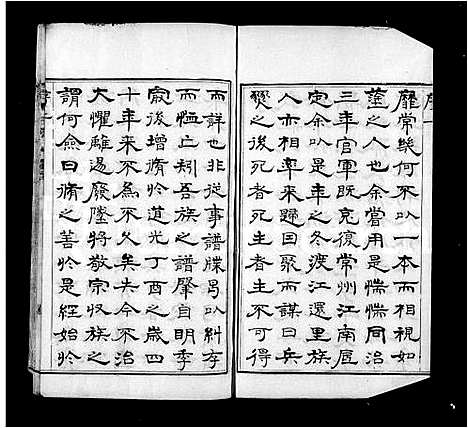 靡常幾何不以一本而相視如
塗之人也余嘗用是惴惴同治
三年官軍既克復常州江南底
定余以是年之冬渡江還里族
人亦相率來歸曰聚而謀曰兵
燹之後死者死生者生不可得
而詳也非從事譜牒曷以糾存
而恤亡矧吾族之譜肇自明季
㝡後增脩於道光丁酉之歲四
十年來不為不久矣失今不治
大懼離逷廢墜將敬宗收族之
謂何僉曰脩之善於是經始於